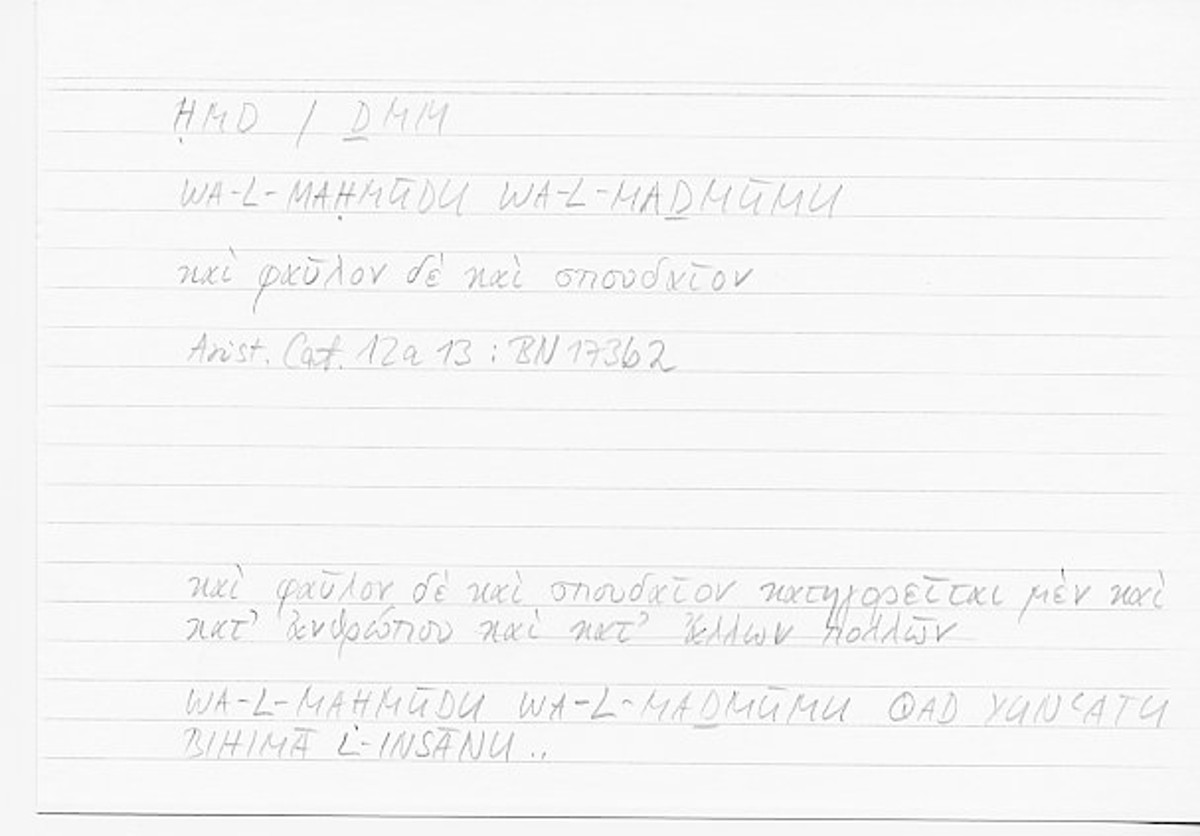 ḤMD / ḎMM
WA-L-MAḤMŪDU WA-L-MAḎMŪMU
καὶ φαῦλον δὲ καὶ σπουδαῖον
Arist. Cat. 12a 13 : BN 173b2
καὶ φαῦλον δὲ καὶ σπουδαῖον κατηγορεῖται μὲν καὶ
κατ' ἀνθρώπου καὶ κατ' ἄλλων πολλῶν
WA-L-MAḤMŪDU WA-L-MAḎMŪMU QAD YUNʿATU
BIHIMĀ L-INSĀNU ..